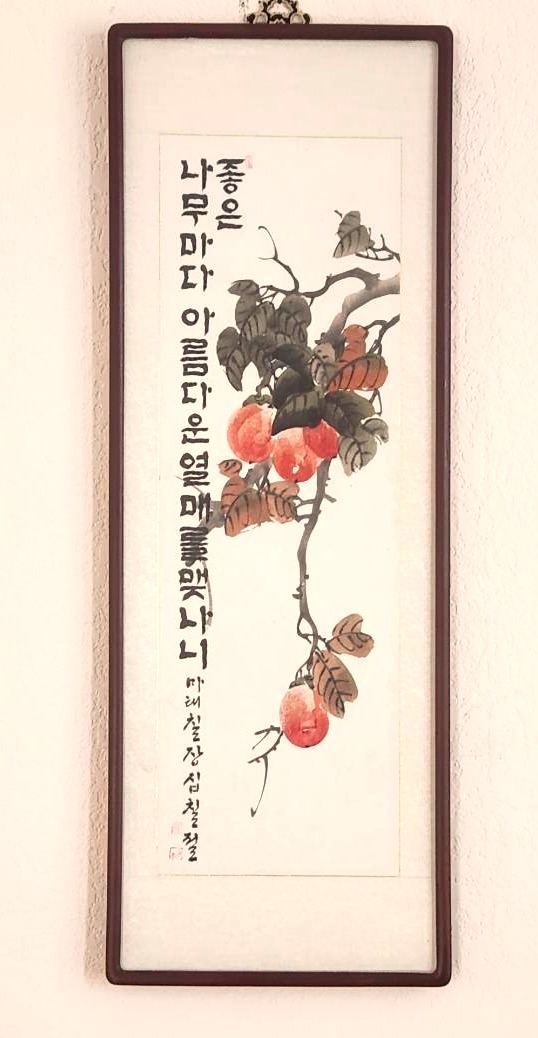 좋은
나무마다 아름다운 열매를 맺나니
마태 칠장 십칠절